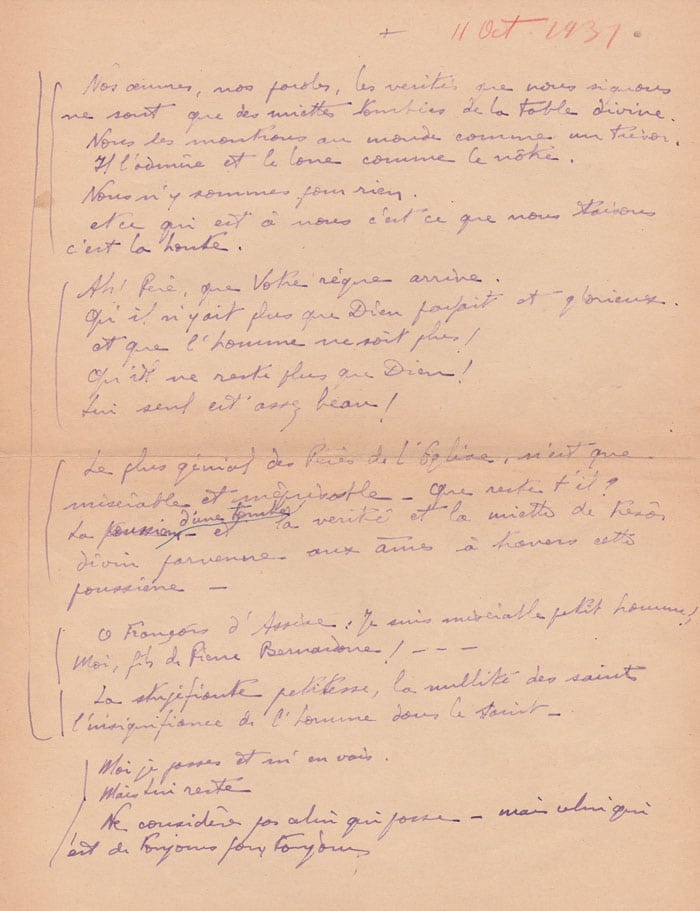 + 11 Oct. 1931
Nos œuvres, nos paroles, les vérités que nous signons
ne sont que des miettes tombées de la table divine.
Nous les montrons au monde comme un trésor.
Il l'admire et le loue comme le nôtre.
Nous n'y sommes pour rien.
et ce qui est à nous c'est ce que nous taisons
c'est la honte.
Ah! Père, que Votre règne arrive.
Qu'il n'y ait plus que Dieu parfait et glorieux.
et que l'homme ne soit plus!
Qu'il ne reste plus que Dieu!
Lui seul est assez beau!
Le plus génial des Pères de l'Eglise, n'est que
misérable et méprisable - que reste t'il?
d'une tombe
La poussière et la vérité et la miette de trésor
divin parvenue aux âmes à travers cette
poussière -
O François d'Assise: Je suis misérable petit homme!
Moi, fils de Pierre Bernardone! - - -
La stupéfiante petitesse, la nullité des saints
l'insignifiance de l'homme dans le saint -
Moi je passe et m'en vais.
Mais Lui reste
Ne considère pas celui qui passe - mais celui qui
est de toujours pour toujours